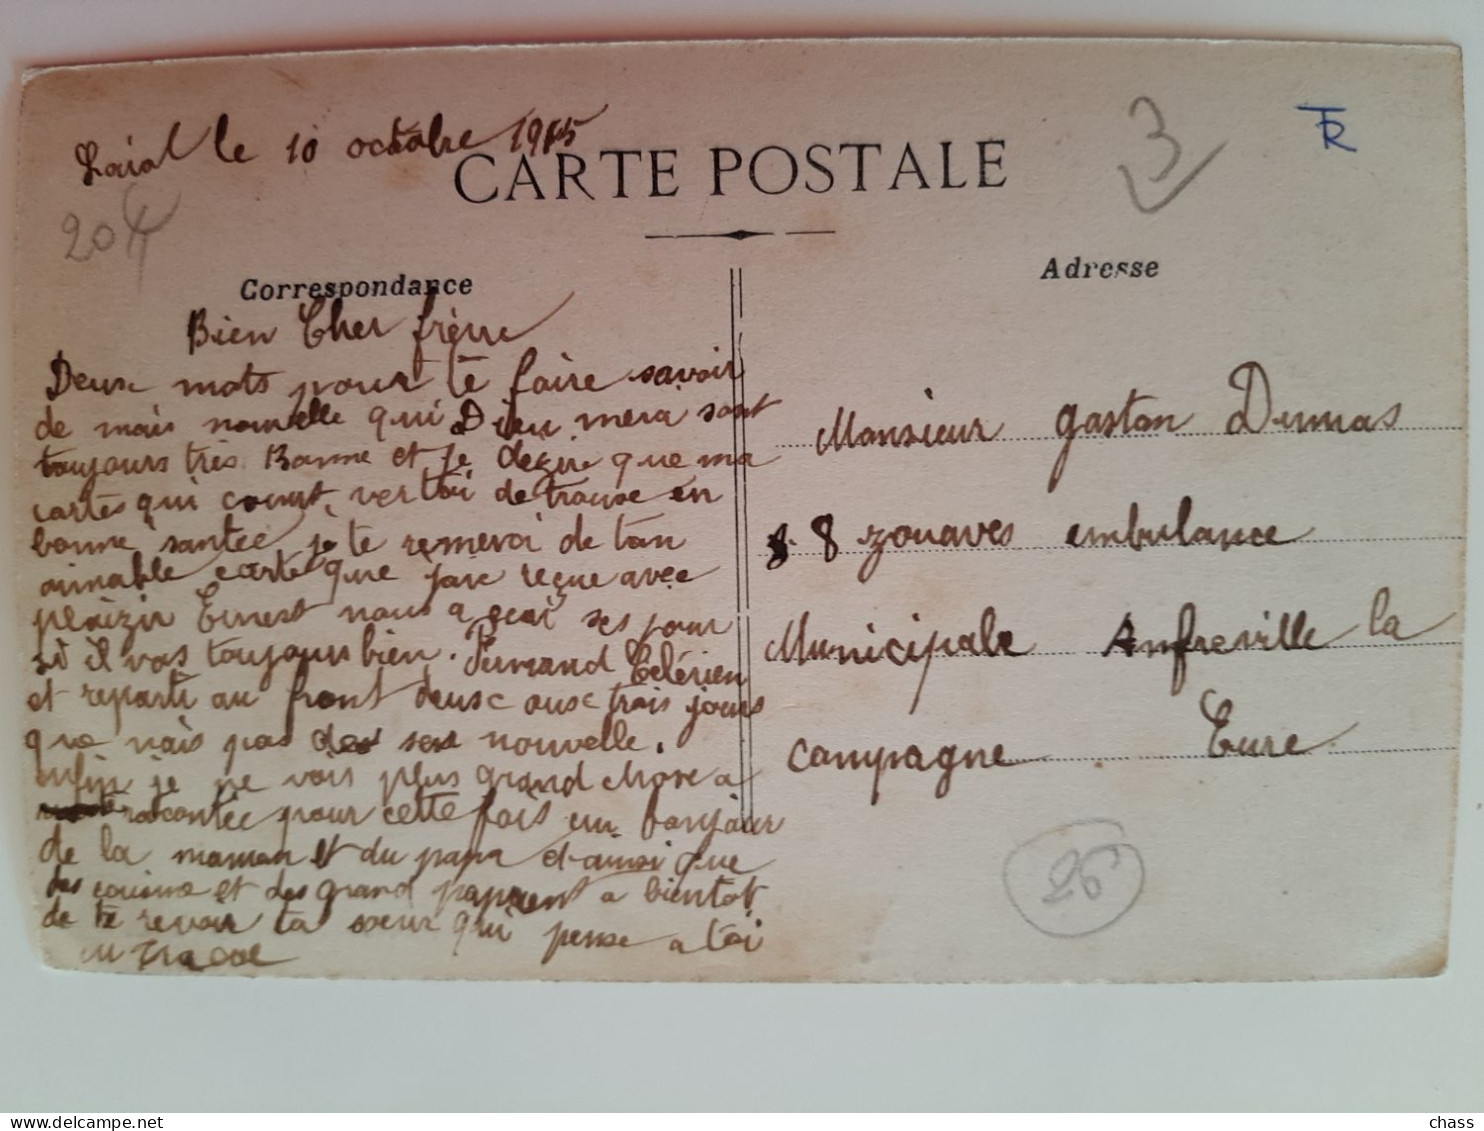 le 10 octobre 1915
CARTE POSTALE
3
TR
20
Correspondance
Adresse
Bien Cher frère
Deux mots pour te faire savoir
de mais nouvelle qui Dieu merci sont
toujours très Bonne et je dezire que ma
cartes qui court ver toi de trouve en
bonne santée je te remerci de tan
aimable carte que jaie reçue avec
plaizir Ernest nous a ses jour
si il vas toujours bien. Celérien
et reparti au front deux ouse trois jours
que nais pas des ses nouvelle.
enfin je ne vois plus grand chose a
racontée pour cette fois un bonjour
de la maman et du papa d'ainsi que
des cousins et des grand paparent a bientot
de te revoir ta soeur qui pense a toi
Monsieur Gaston Dumas
8 zouaves embulance
Municipale Amfreville la
campagne Eure
26
chass